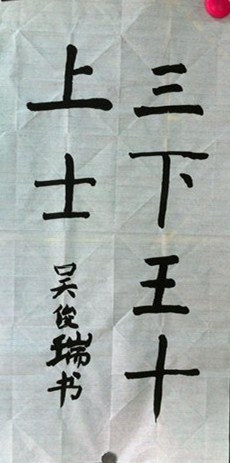 三下王十
上士
吴俊瑞书